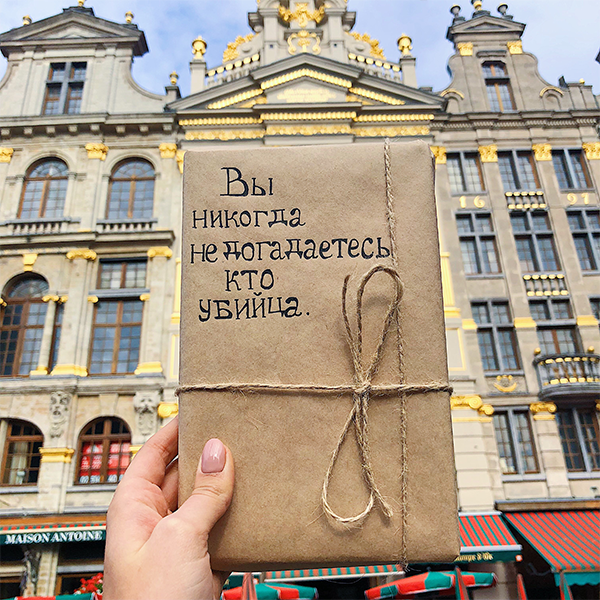 Вы
никогда
не догадаетесь
кто
убийца.
16 97
MAISON ANTOINE